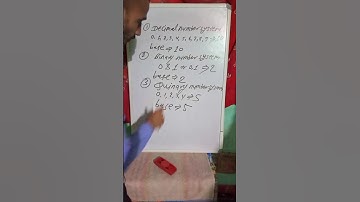 ① Decimal number system
0, 1, 2, 3, 4, 5, 6, 7, 8, 9 ⇒ 10
base ⇒ 10
② Binary number system
0 & 1 or 0,1 ⇒ 2
base ⇒ 2
③ Quinary number system
0, 1, 2, 3, 4 ⇒ 5
base ⇒ 5